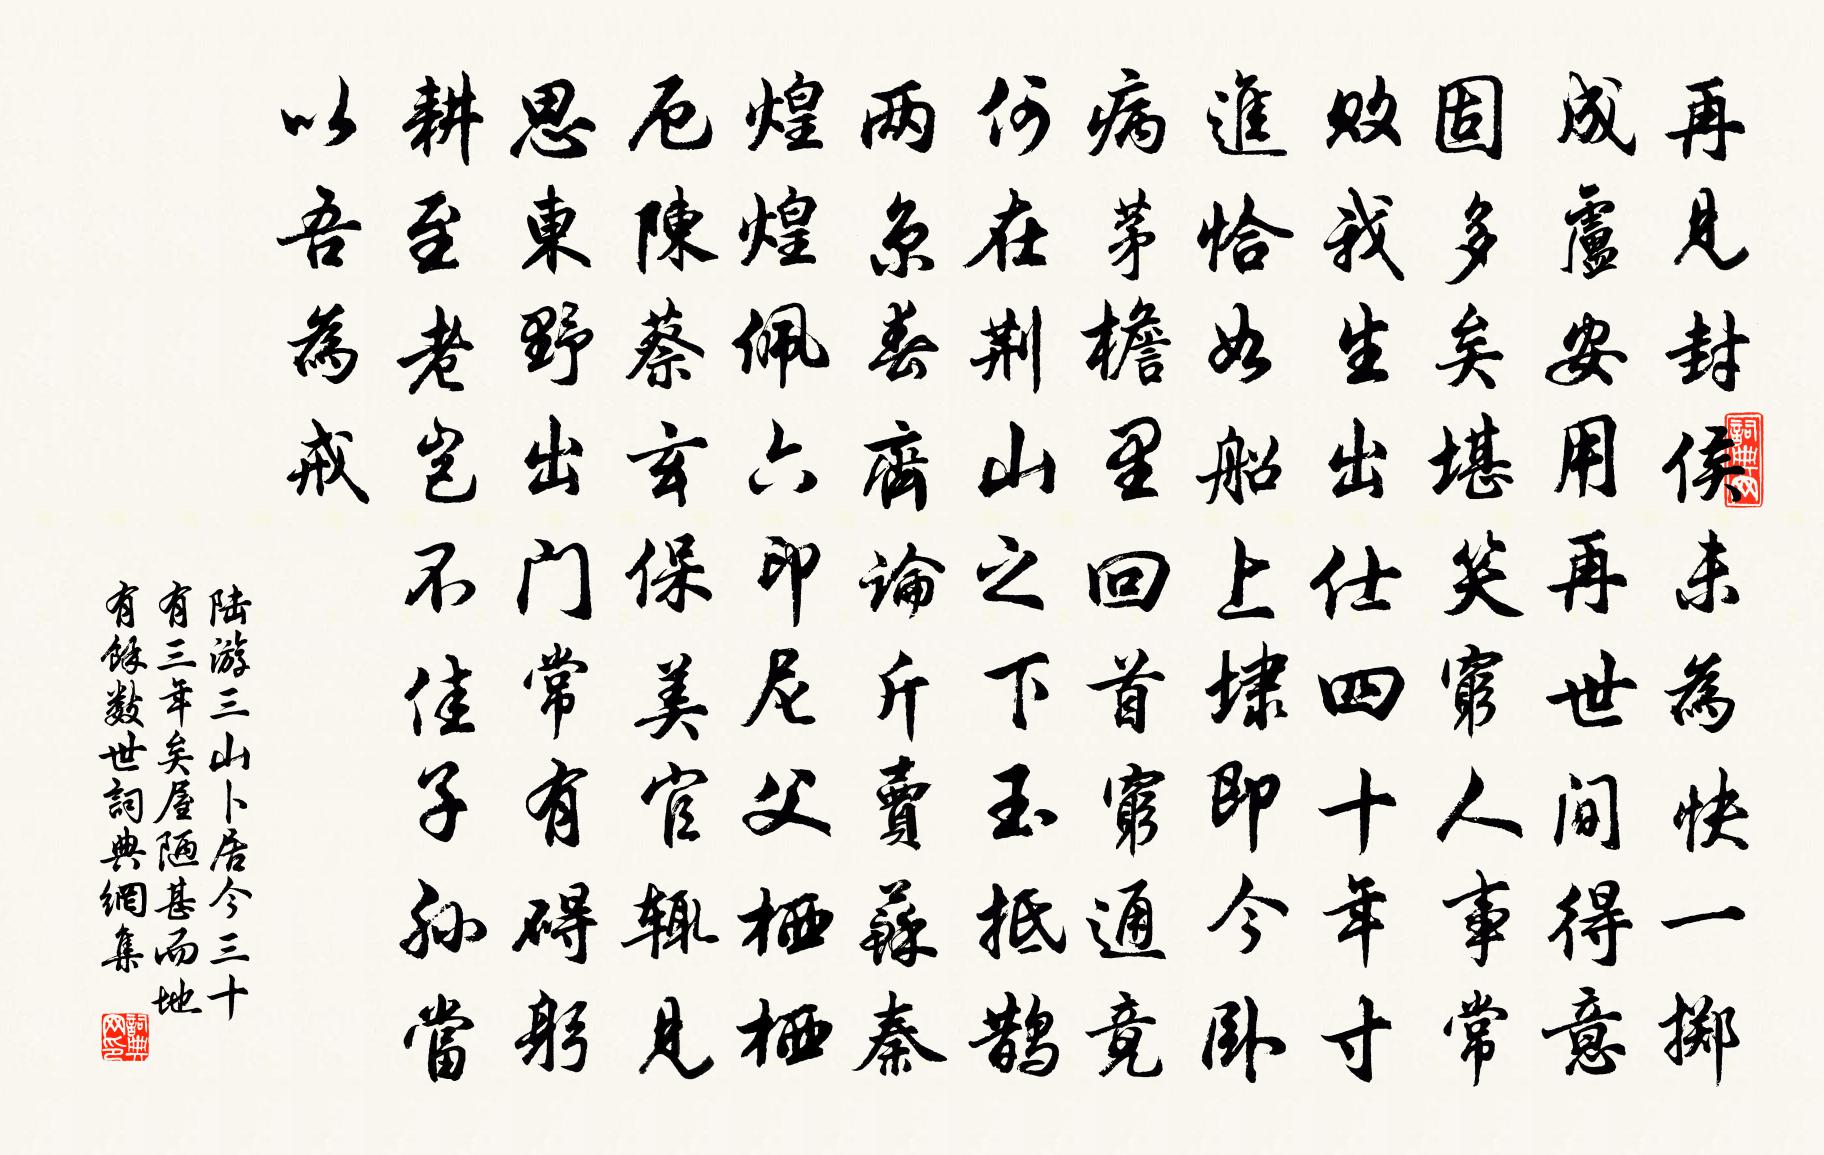 再見封侯未為快一掷
成盧安用再世间得意
固多矣堪笑窮人事常
败我生出仕四十年寸
進恰如船上埭即今卧
病茅檐里回首窮通竟
何在荆山之下玉抵鹊
两京春薺論斤賣蘇秦
煌煌佩六印尼父栖栖
厄陳蔡玄保美官辄見
思東野出门常有碍躬
耕至老豈不佳子孙當
以吾為戒
陆游三山卜居今三十
有三年矣屋陋甚而地
有餘数世詞典網集
詞典网
詞典网印